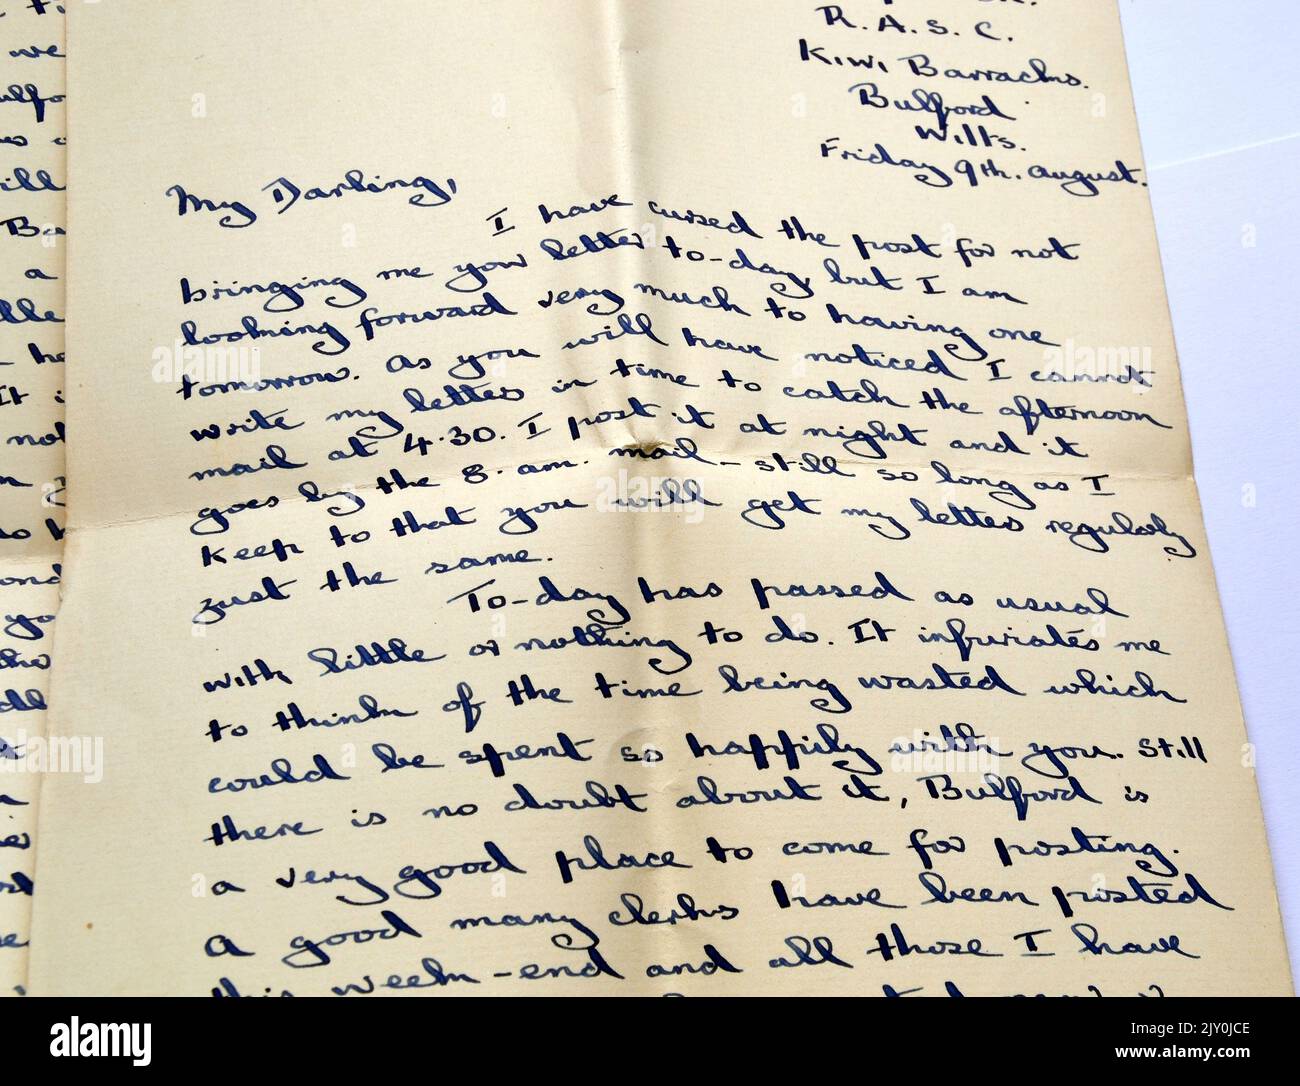 R.A.S.C.
Kiwi Barracks.
Bulford
Wilts.
Friday 9th. August.
My Darling,
I have cursed the post for not
bringing me your letter to-day, but I am
looking forward very much to having one
tomorrow. As you will have noticed I cannot
write my letters in time to catch the afternoon
mail at 4.30. I post it at night and it
goes by the 8. am. mail - still so long as I
keep to that you will get my letters regularly
just the same.
To-day has passed as usual
with little or nothing to do. It infuriates me
to think of the time being wasted which
could be spent so happily with you. Still
there is no doubt about it, Bulford is
a very good place to come for posting.
A good many clerks have been posted
this week-end and all those I have
we
ill
Ba
a
It i
not
alamy
Image ID: 2JY0JCE
www.alamy.com